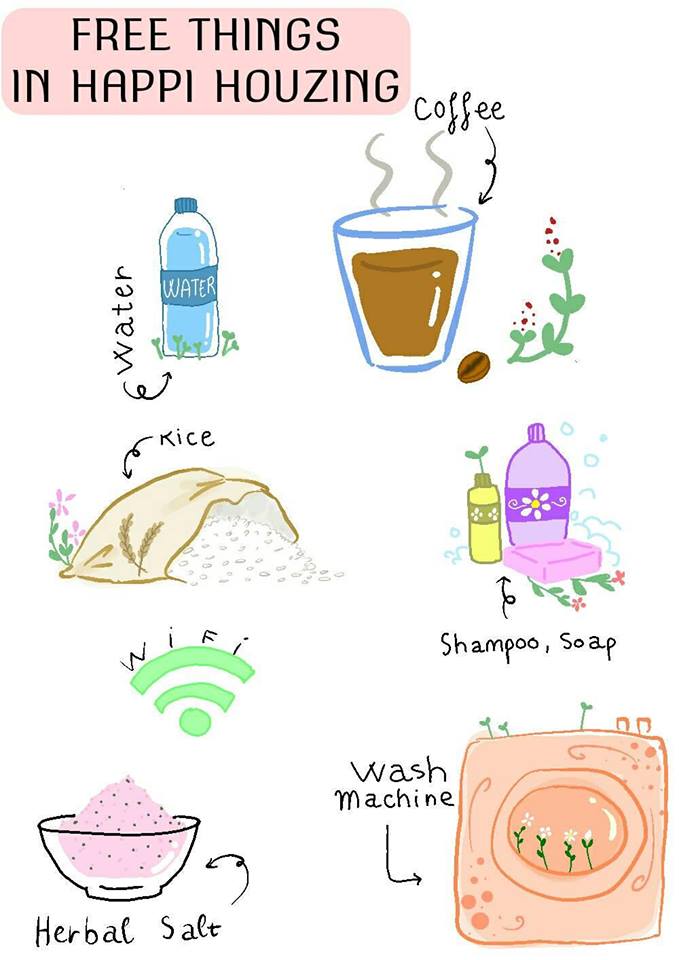 FREE THINGS
IN HAPPI HOUZING
Coffee
Water
WATER
Rice
Shampoo, Soap
WiFi
Wash
Machine
Herbal Salt